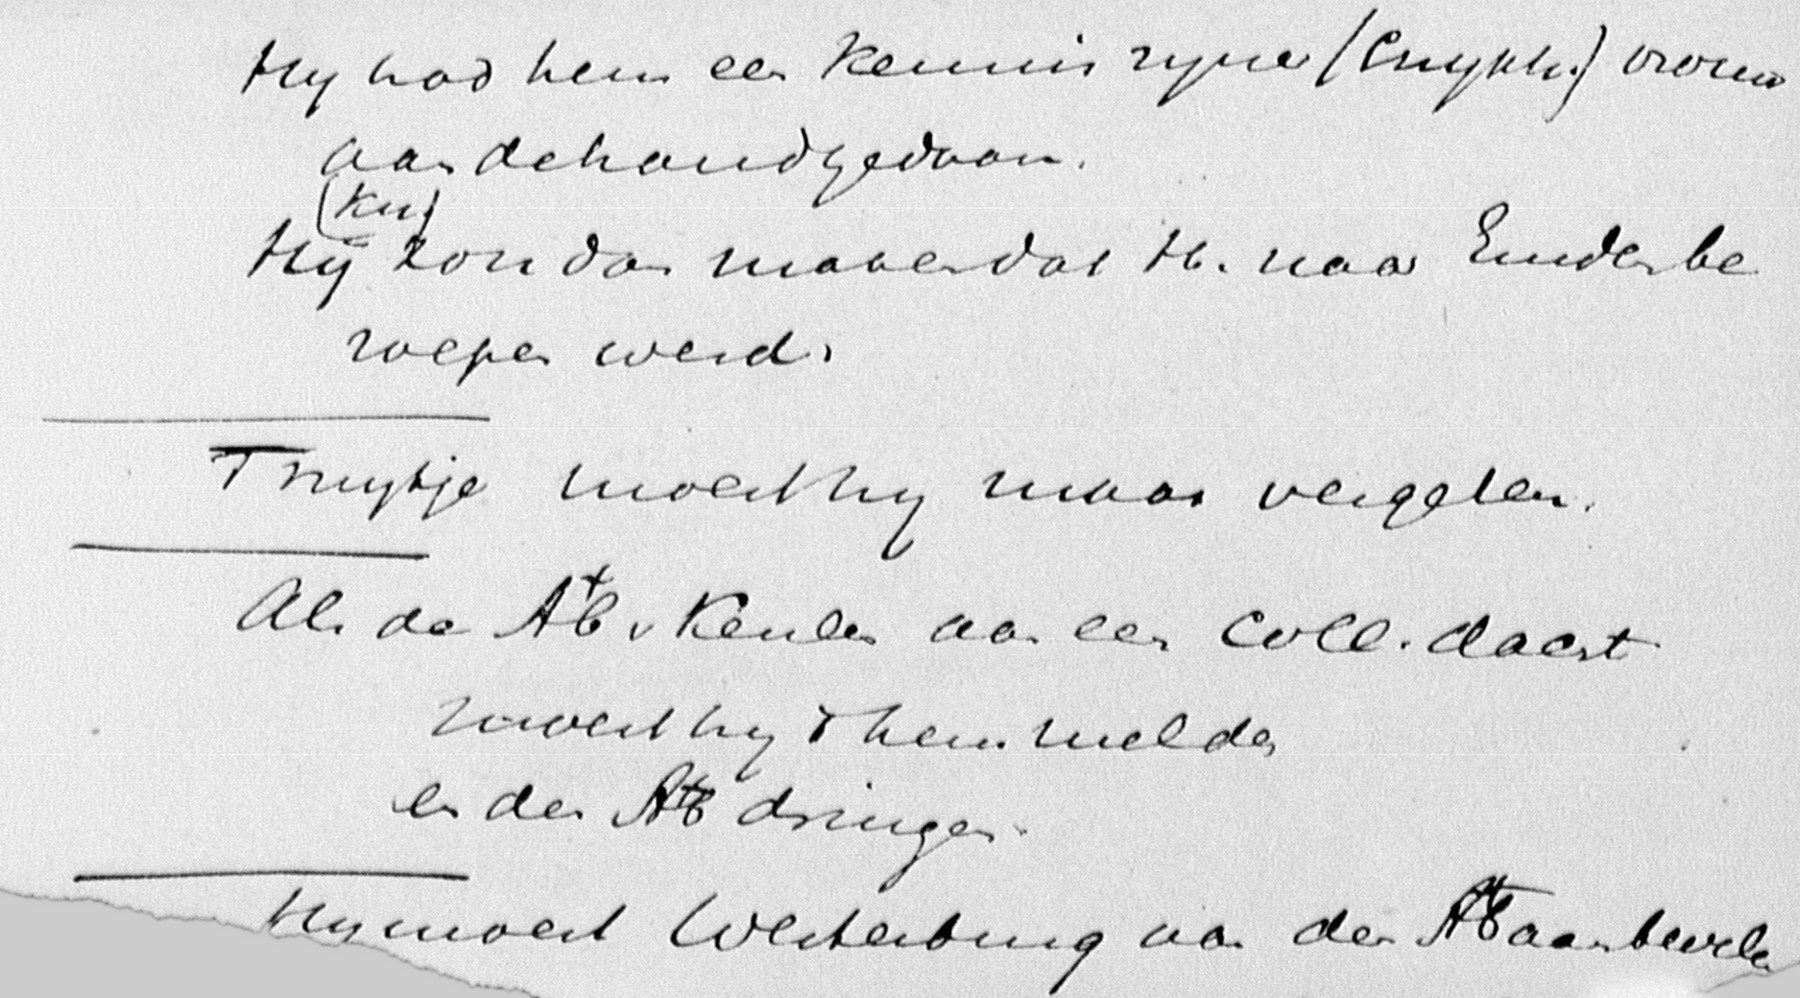 Hy had hem een kennis zyner (Cnyph.) vrouw
aan de hand gedaan.
(Kn)
Hij zou dan maken dat H. naar Emden be
roepen werd.
Truytje moest hy maar vergeten.
Als de A+B v Keulen aan een coll. dacht
moest hy 't hem melden
en den A+B dringen.
Hy moest Westerburg aan den A+B aanbevelen